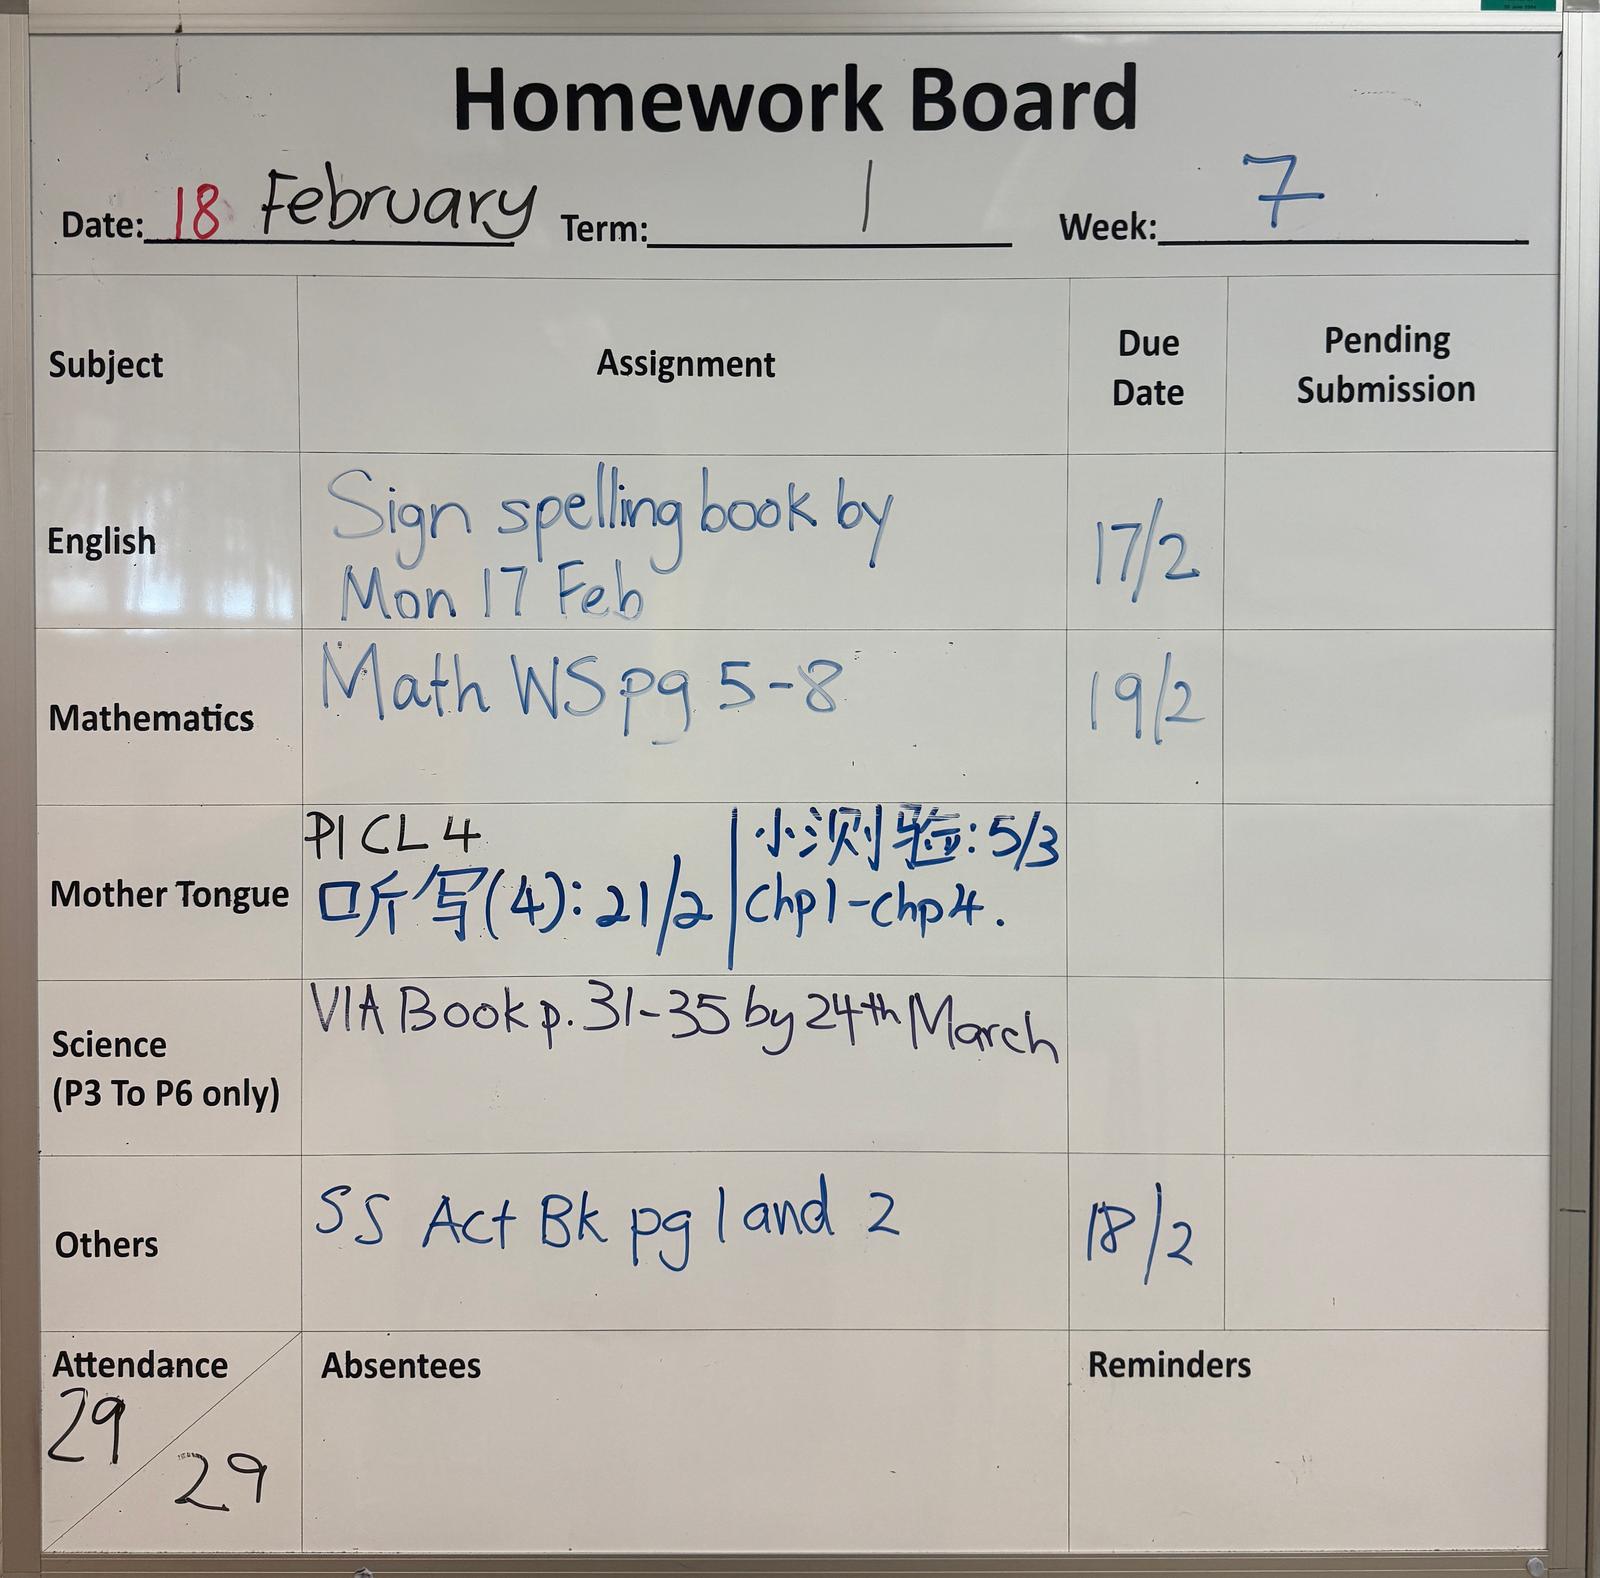 Homework Board
Date: 18 February Term: 1 Week: 7
Subject Assignment Due Date Pending Submission
English Sign spelling book by
Mon 17 Feb 17/2
Mathematics Math WS pg 5-8 19/2
Mother Tongue P1 CL 4
听写(4): 21/2
小测验: 5/3
Chp1-Chp4.
Science
(P3 To P6 only) VIA Book p. 31-35 by 24th March
Others SS Act Bk pg 1 and 2 18/2
Attendance Absentees Reminders
29
29